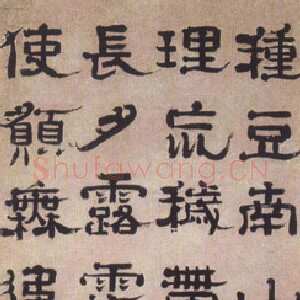 種豆南山
理荒穢帶
長夕露霑
使願無違
Shufawang.CN